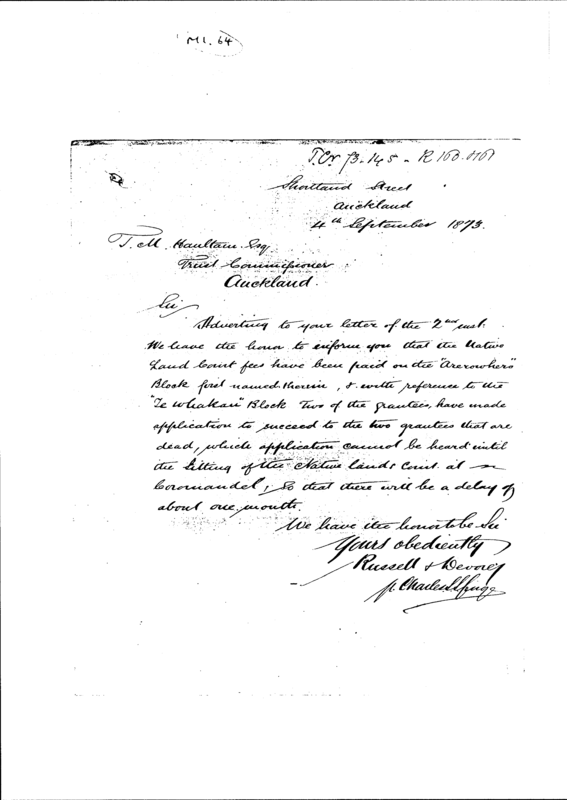 M1.64
T.Cr 73.145 - R
Shortland Street
Auckland
4th September 1873.
T. M. Haultain Esq
Trust Commissioner
Auckland.
Sir
Adverting to your letter of the 2nd inst.
We have the honor to inform you that the Native
Land Court fees have been paid on the "Arerowhero"
Block first named therein, & with reference to the
"Te Whakau" Block Two of the grantees, have made
application to succeed to the two grantees that are
dead, which application cannot be heard until
the Sitting of the Native Lands Court at
Coromandel, So that there will be a delay of
about one month.
We have the honor to be Sir
Yours obediently
Russell & Devore
p. Charles